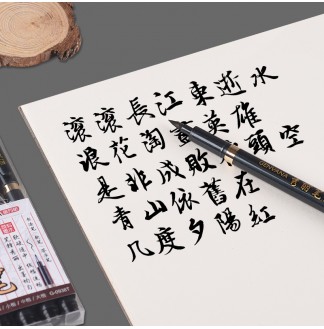 滾滾長江東逝水
浪花淘盡英雄
是非成敗頭空
青山依舊在
几度夕陽紅
GENVANA